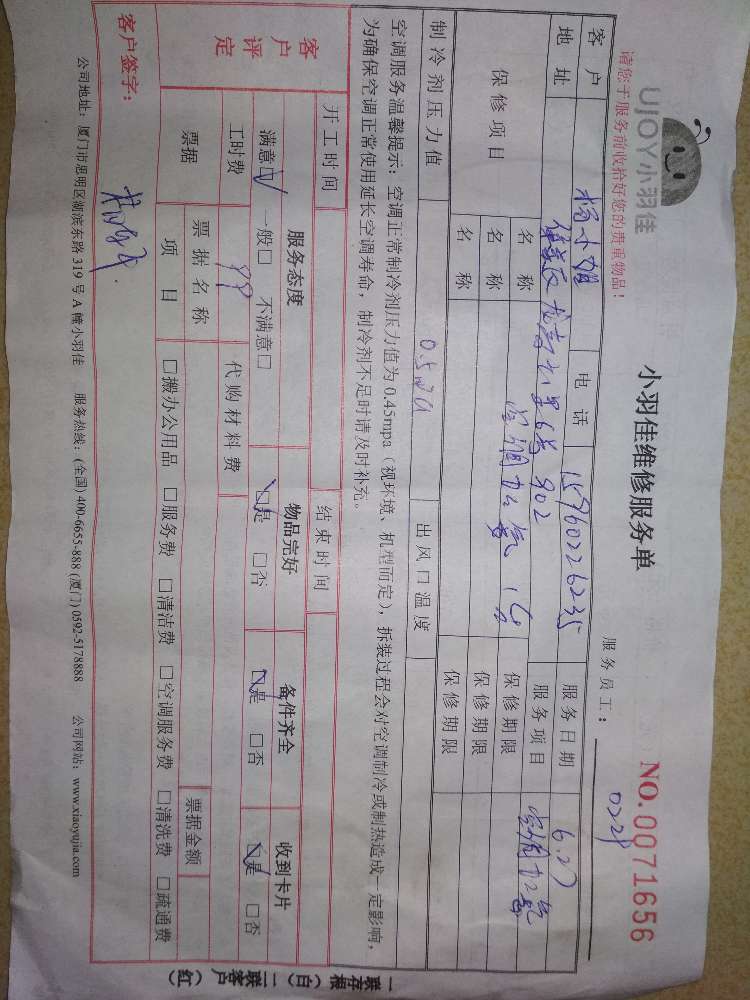 UJOY小羽佳
小羽佳维修服务单
NO.0071656
请您于服务前收拾好您的贵重物品！
服务员工： 0228
客户 杨小姐 电话 15960226235 服务日期 6.27
地址 龙 小 6 902 服务项目 空调加氟
保修项目 名称 空调加氟 保修期限
名称 保修期限
名称 保修期限
制冷剂压力值 0.5 出风口温度
空调服务温馨提示：空调正常制冷剂压力值为0.45mpa（视环境、机型而定），拆装过程会对空调制冷或制热造成一定影响，
为确保空调正常使用延长空调寿命，制冷剂不足时请及时补充。
开工时间 结束时间
客户评定 服务态度 物品完好 备件齐全 收到卡片
满意□ 一般□ 不满意□ □是 □否 □是 □否 □是 □否
工时费 99 代购材料费
票据 票据名称 票据金额
项目 □搬办公用品 □服务费 □清洁费 □空调服务费 □清洗费 □疏通费
客户签字：
公司地址：厦门市思明区湖滨东路319号A幢小羽佳 服务热线：(全国) 400-6655-888 (厦门) 0592-5178888 公司网站：www.xiaoyujia.com
一联存根（白）二联客户（红）